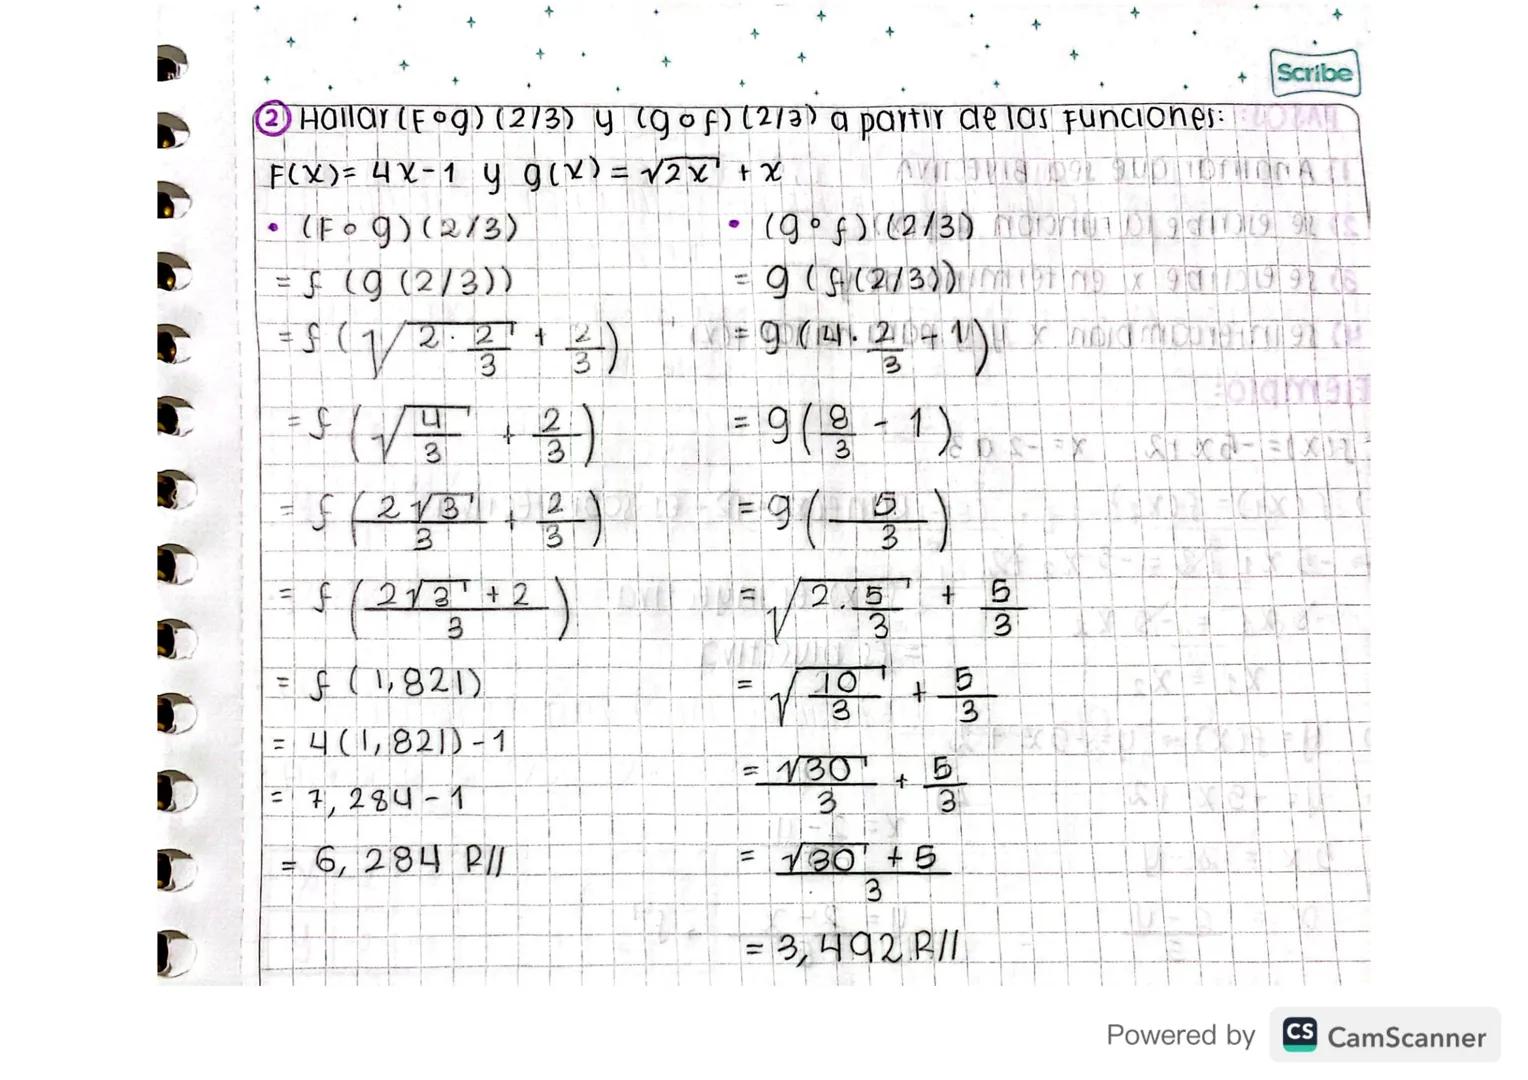 Scribe
② Hallar (F∘g) (2/3) y (g∘f) (2/3) a partir de las funciones:
F(x)= 4x-1 y g(x) = √2x + x
• (F∘g)(2/3)
= f (g (2/3))
= f (√(2·2/3) + 2/3)
= f (√(4/3) + 2/3)
= f (2√3/3 + 2/3)
= f ((2√3 + 2)/3)
= f (1,821)
= 4(1,821)-1
= 7,284-1
= 6,284 R//
• (g∘f)(2/3)
= g (f(2/3))
= g (4·2/3 - 1)
= g (8/3 - 1)
= g (5/3)
= √(2·5/3) + 5/3
= √(10/3) + 5/3
= √30/3 + 5/3
= (√30 + 5)/3
= 3,492 R//
Powered by CS CamScanner